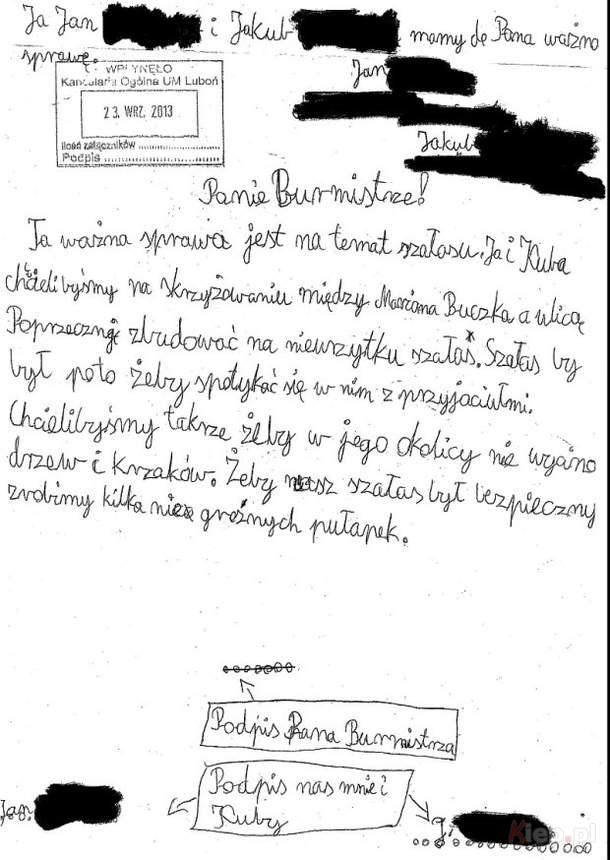 Ja Jan i Jakub mamy do Pana ważno
sprawę.
WPŁYNĘŁO
Kancelaria Ogólna UM Luboń
23. WRZ. 2013
Ilość załączników
Podpis
Jan
Jakub
Panie Burmistrze!
Ta ważna sprawa jest na temat szałasu. Ja i Kuba
chcielibyśmy na skrzyżowaniu między Mariana Buczka a ulicą
Poprzeczną zbudować na nieurzytku szałas. Szałas by
był poto żeby spotykać się w nim z przyjaciułmi.
Chcielibyśmy takrze żeby w jego okolicy nie wycino
drzew i krzaków. Żeby nasz szałas był bezpieczny
zrobimy kilka nie groźnych pułapek.
Podpis Pana Burmistrza
Podpis nas mnie i
Kuby
Jan
J.
Kiep.pl